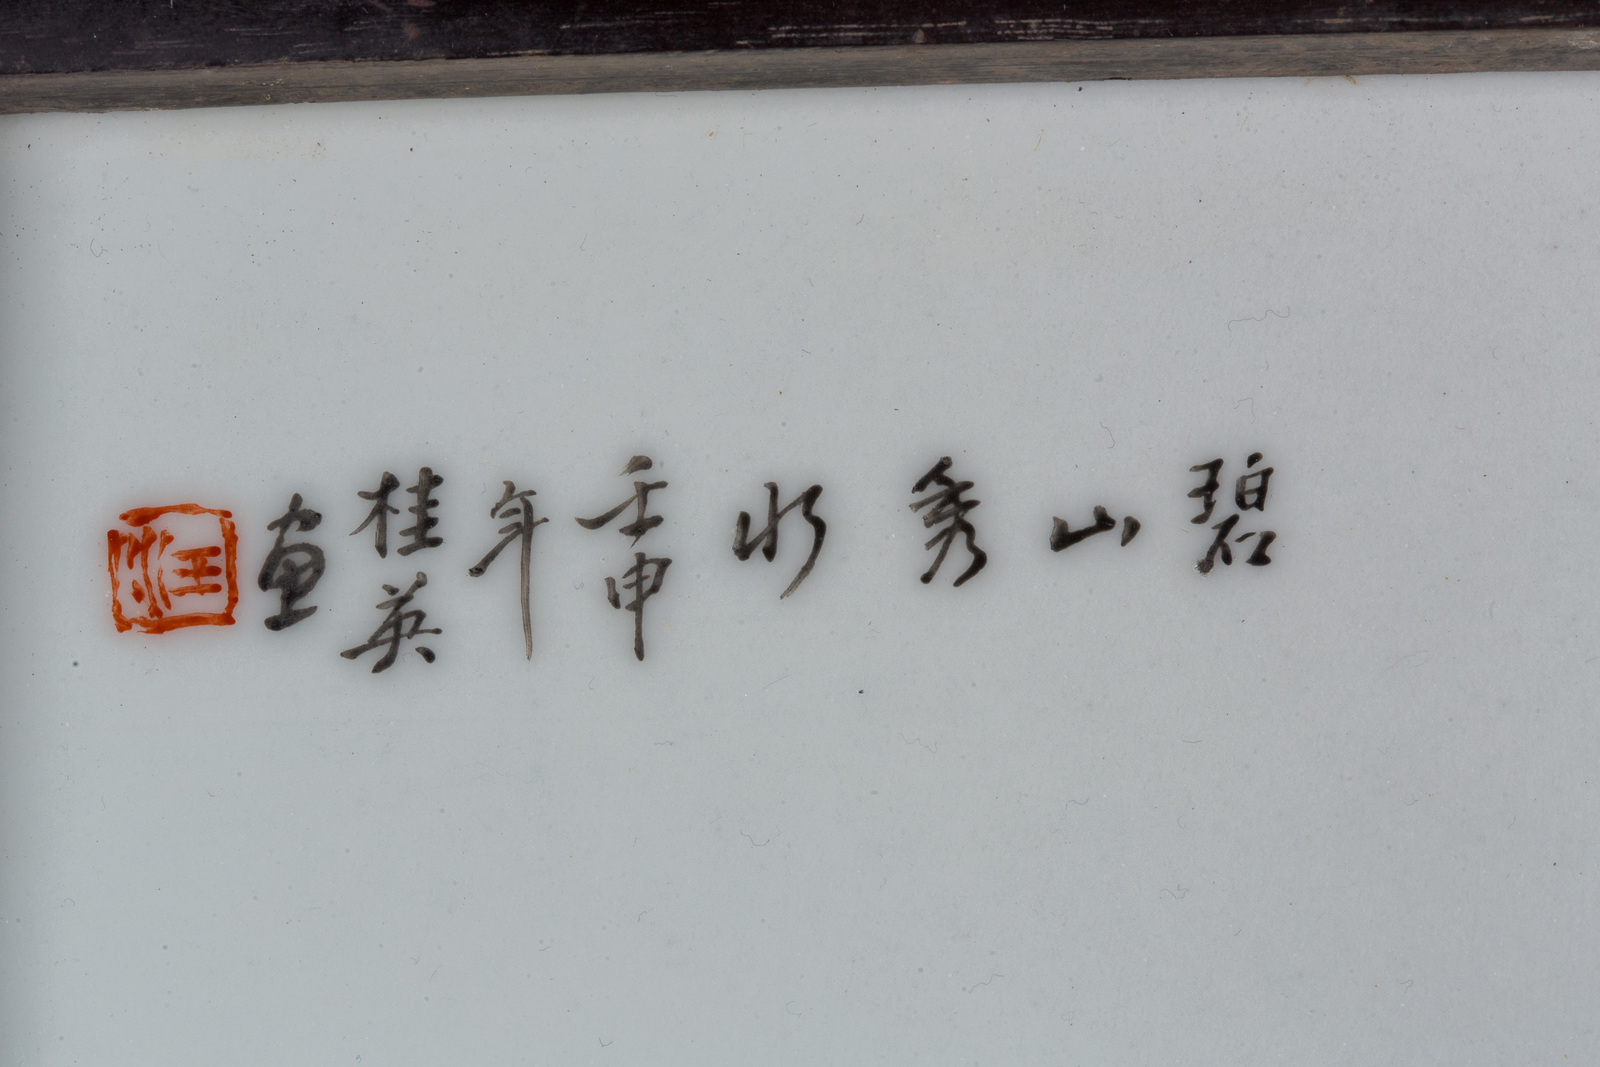 碧山秀水
壬申
年
桂英
画
汪